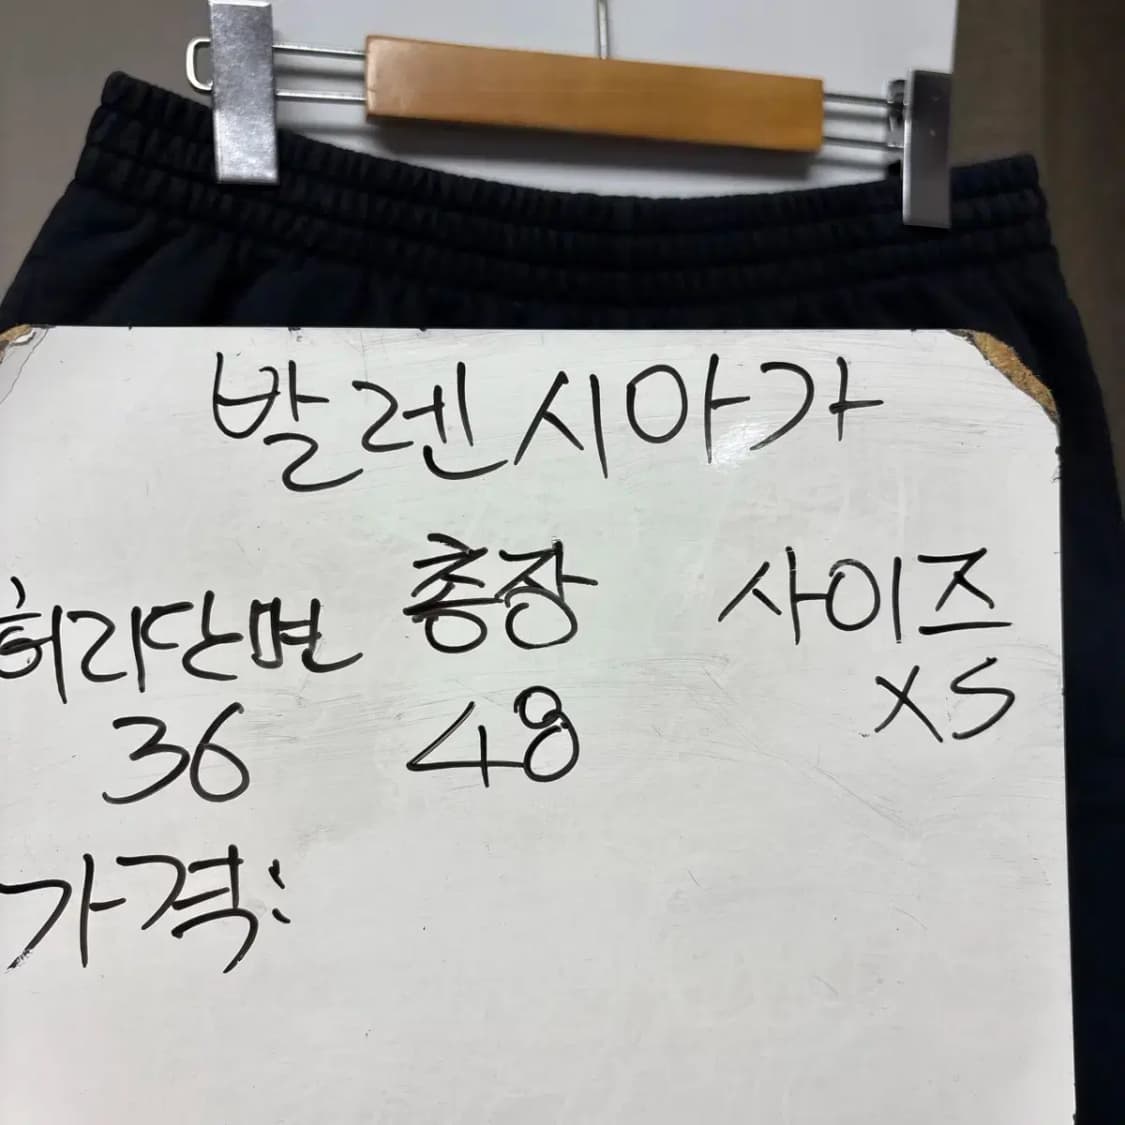 발렌시아가
허리단면 총장 사이즈
36 48 XS
가격: